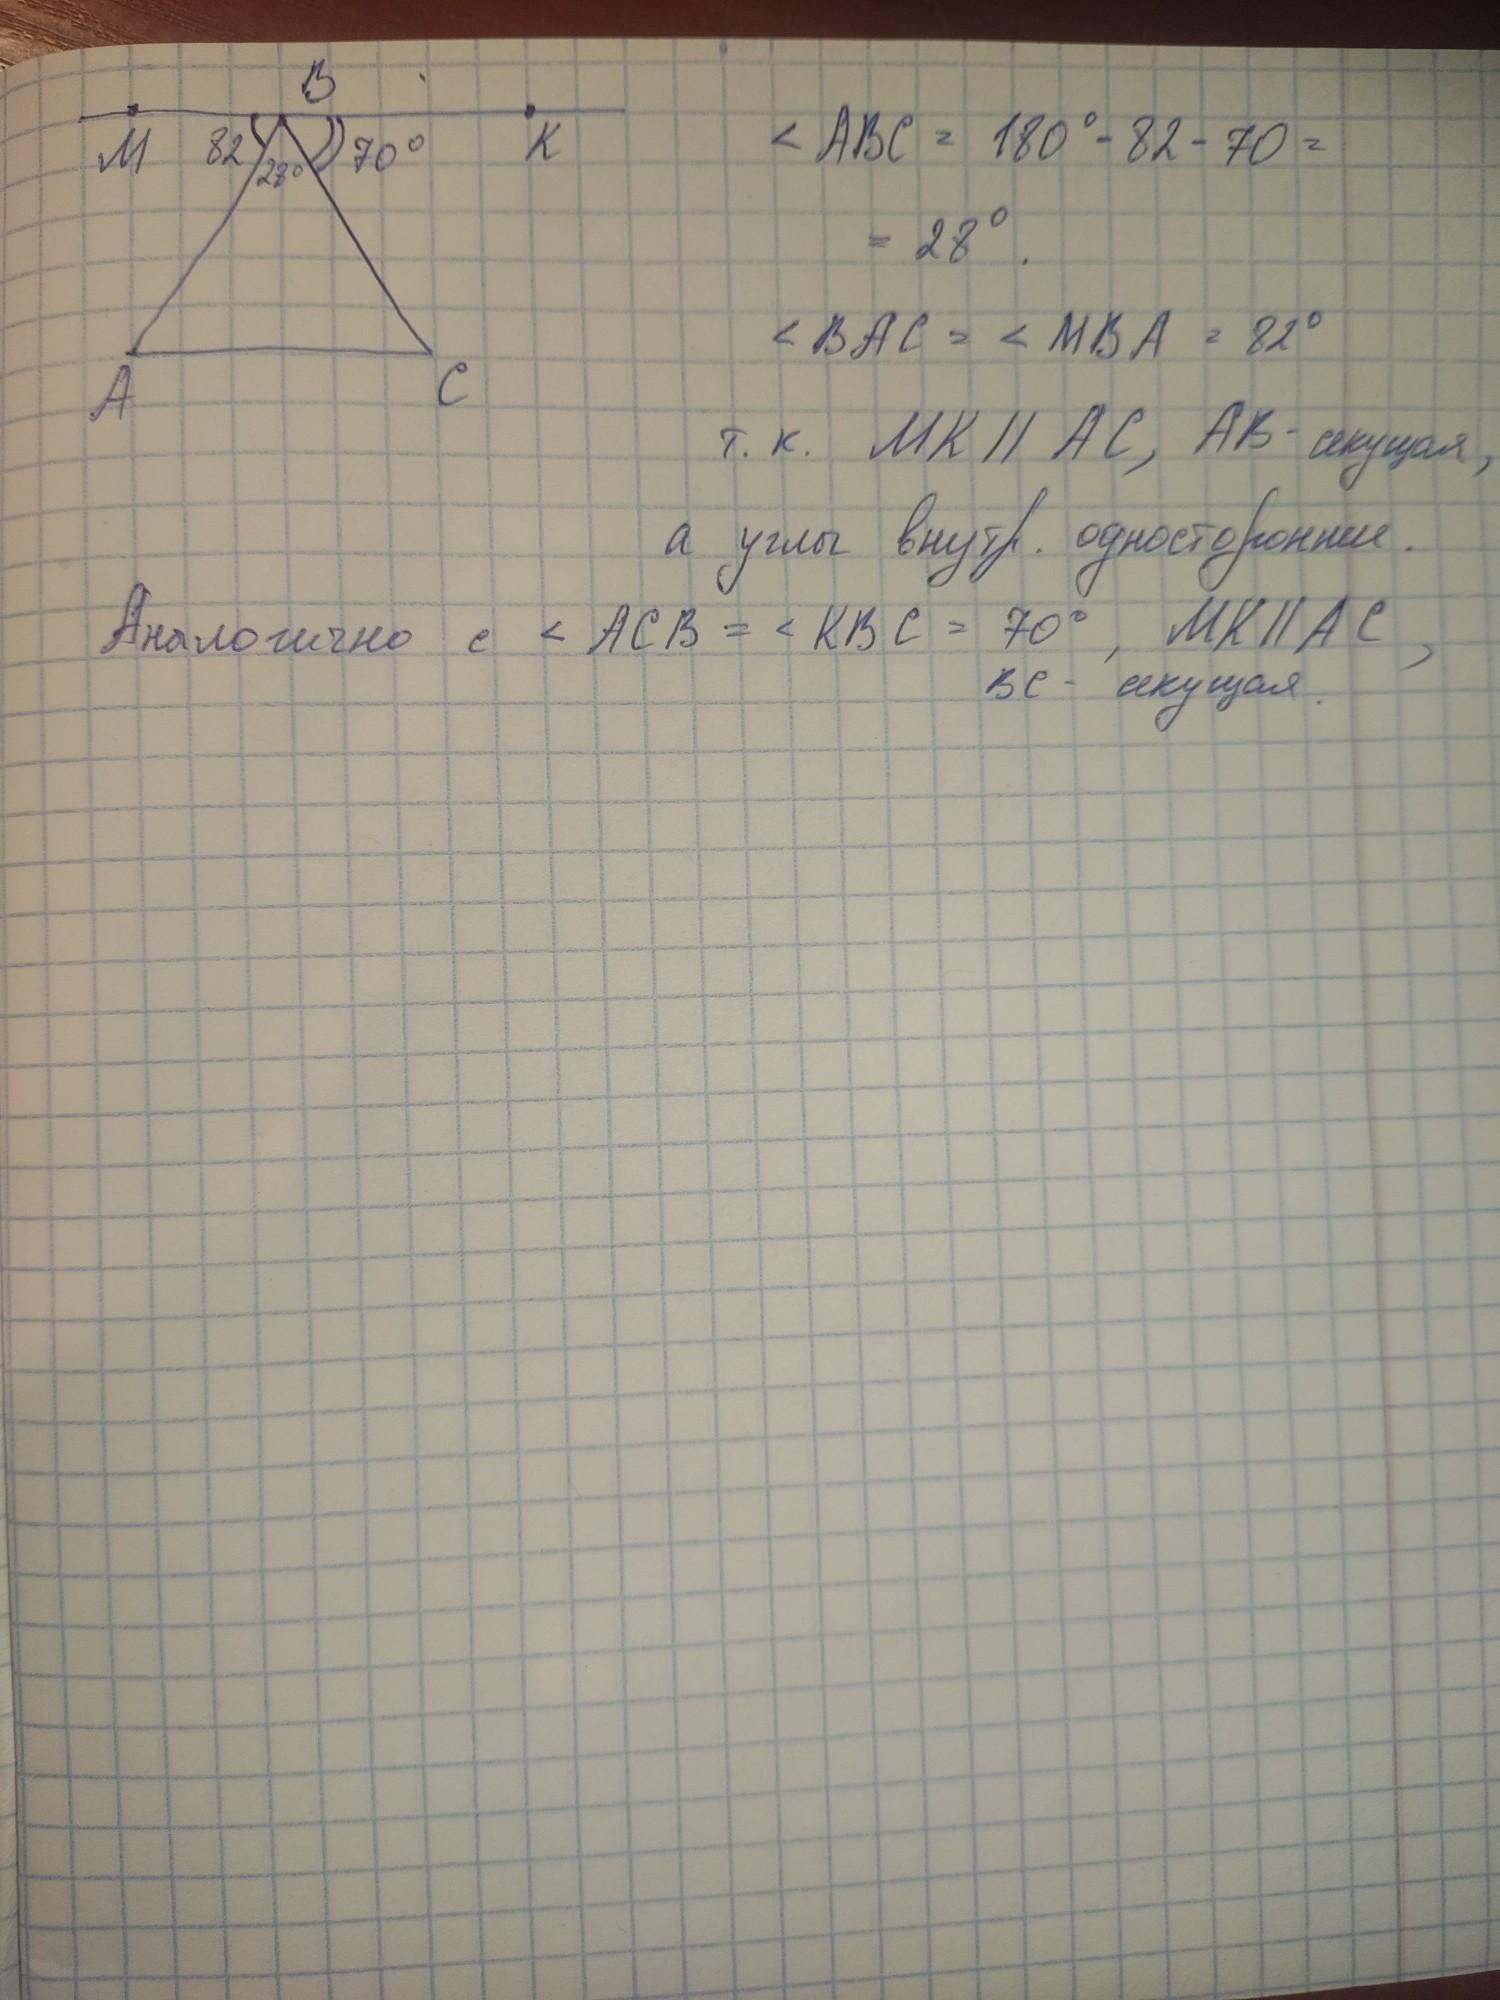 B
M 82 28° 70° K
A C
< ABC = 180° - 82 - 70 =
= 28°.
< BAC = < MBA = 82°
т.к. MK || AC, AB - секущая,
а углы внутр. односторонние.
Аналогично с < ACB = < KBC = 70°, MK || AC,
BC - секущая.